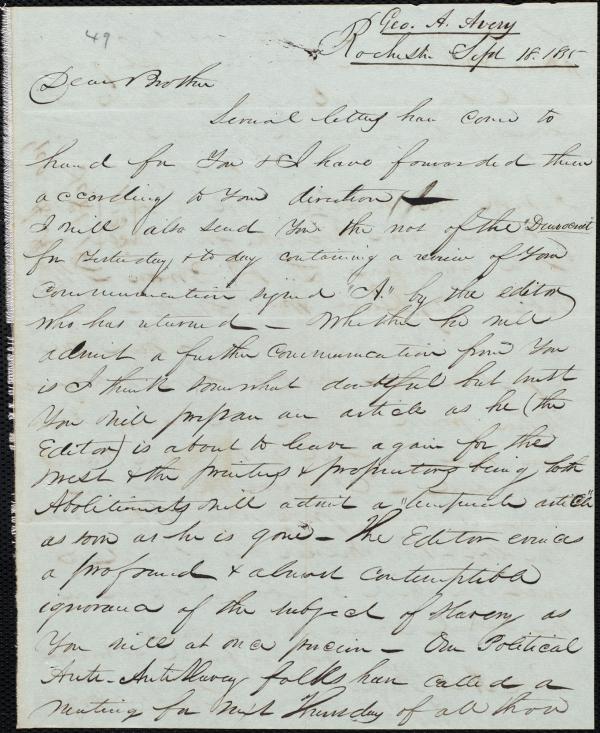 49
Geo. A. Avery
Rochester Sept 18. 185
Dear Brother
Several letters have come to
hand for You & I have forwarded them
according to Your direction
I will also send You the nos of the "Democrat
for Yesterday & to day containing a review of Your
Communication signed "A." by the editor
who has returned – Whether he will
admit a further communication from You
is I think somewhat doubtful but trust
You will prepare an article as he (the
Editor) is about to leave again for the
West & the printers & proprietors being both
Abolitionists will admit a "temperate article"
as soon as he is gone – The Editor evinces
a profound & almost contemptible
ignorance of the subject of Slavery as
You will at once perceive – Our Political
Anti-AntiSlavery folks have called a
meeting for next Thursday of all those